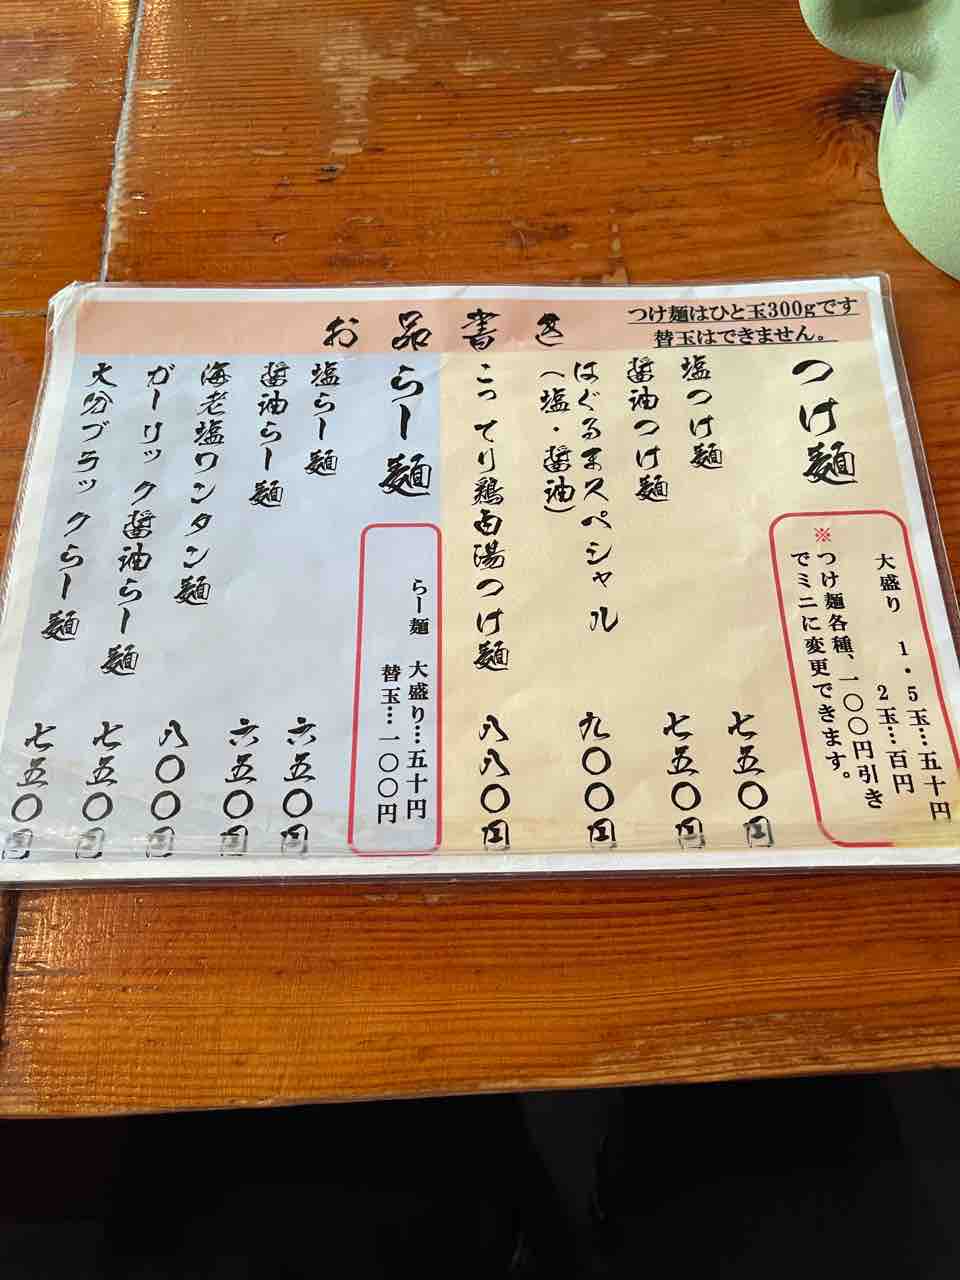 お品書き
つけ麺はひと玉300gです
替玉はできません。
つけ麺
大盛り 1.5玉…五十円
2玉…百円
※つけ麺各種、一〇〇円引き
でミニに変更できます。
塩つけ麺 七五〇円
醤油つけ麺 七五〇円
はぐるまスペシャル
(塩・醤油) 九〇〇円
こってり鶏白湯つけ麺 八八〇円
らー麺
らー麺 大盛り…五十円
替玉…一〇〇円
塩らー麺 六五〇円
醤油らー麺 六五〇円
海老塩ワンタン麺 八〇〇円
ガーリック醤油らー麺 七五〇円
大分ブラックらー麺 七五〇円